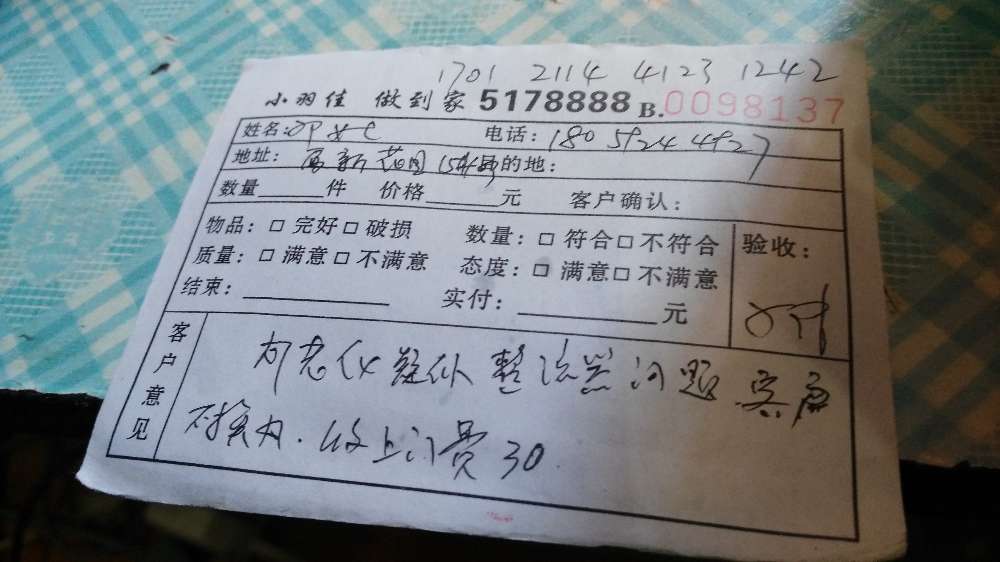 1701 2114 4123 1242
小羽佳 做到家 5178888 B.0098137
姓名: 电话: 18059244927
地址: 高新 花园 的地:
数量 件 价格 元 客户确认:
物品: □ 完好 □ 破损 数量: □ 符合 □ 不符合 验收:
质量: □ 满意 □ 不满意 态度: □ 满意 □ 不满意
结束: 实付: 元
客户意见
疑似整流器问题 客户
不换 收上门费30